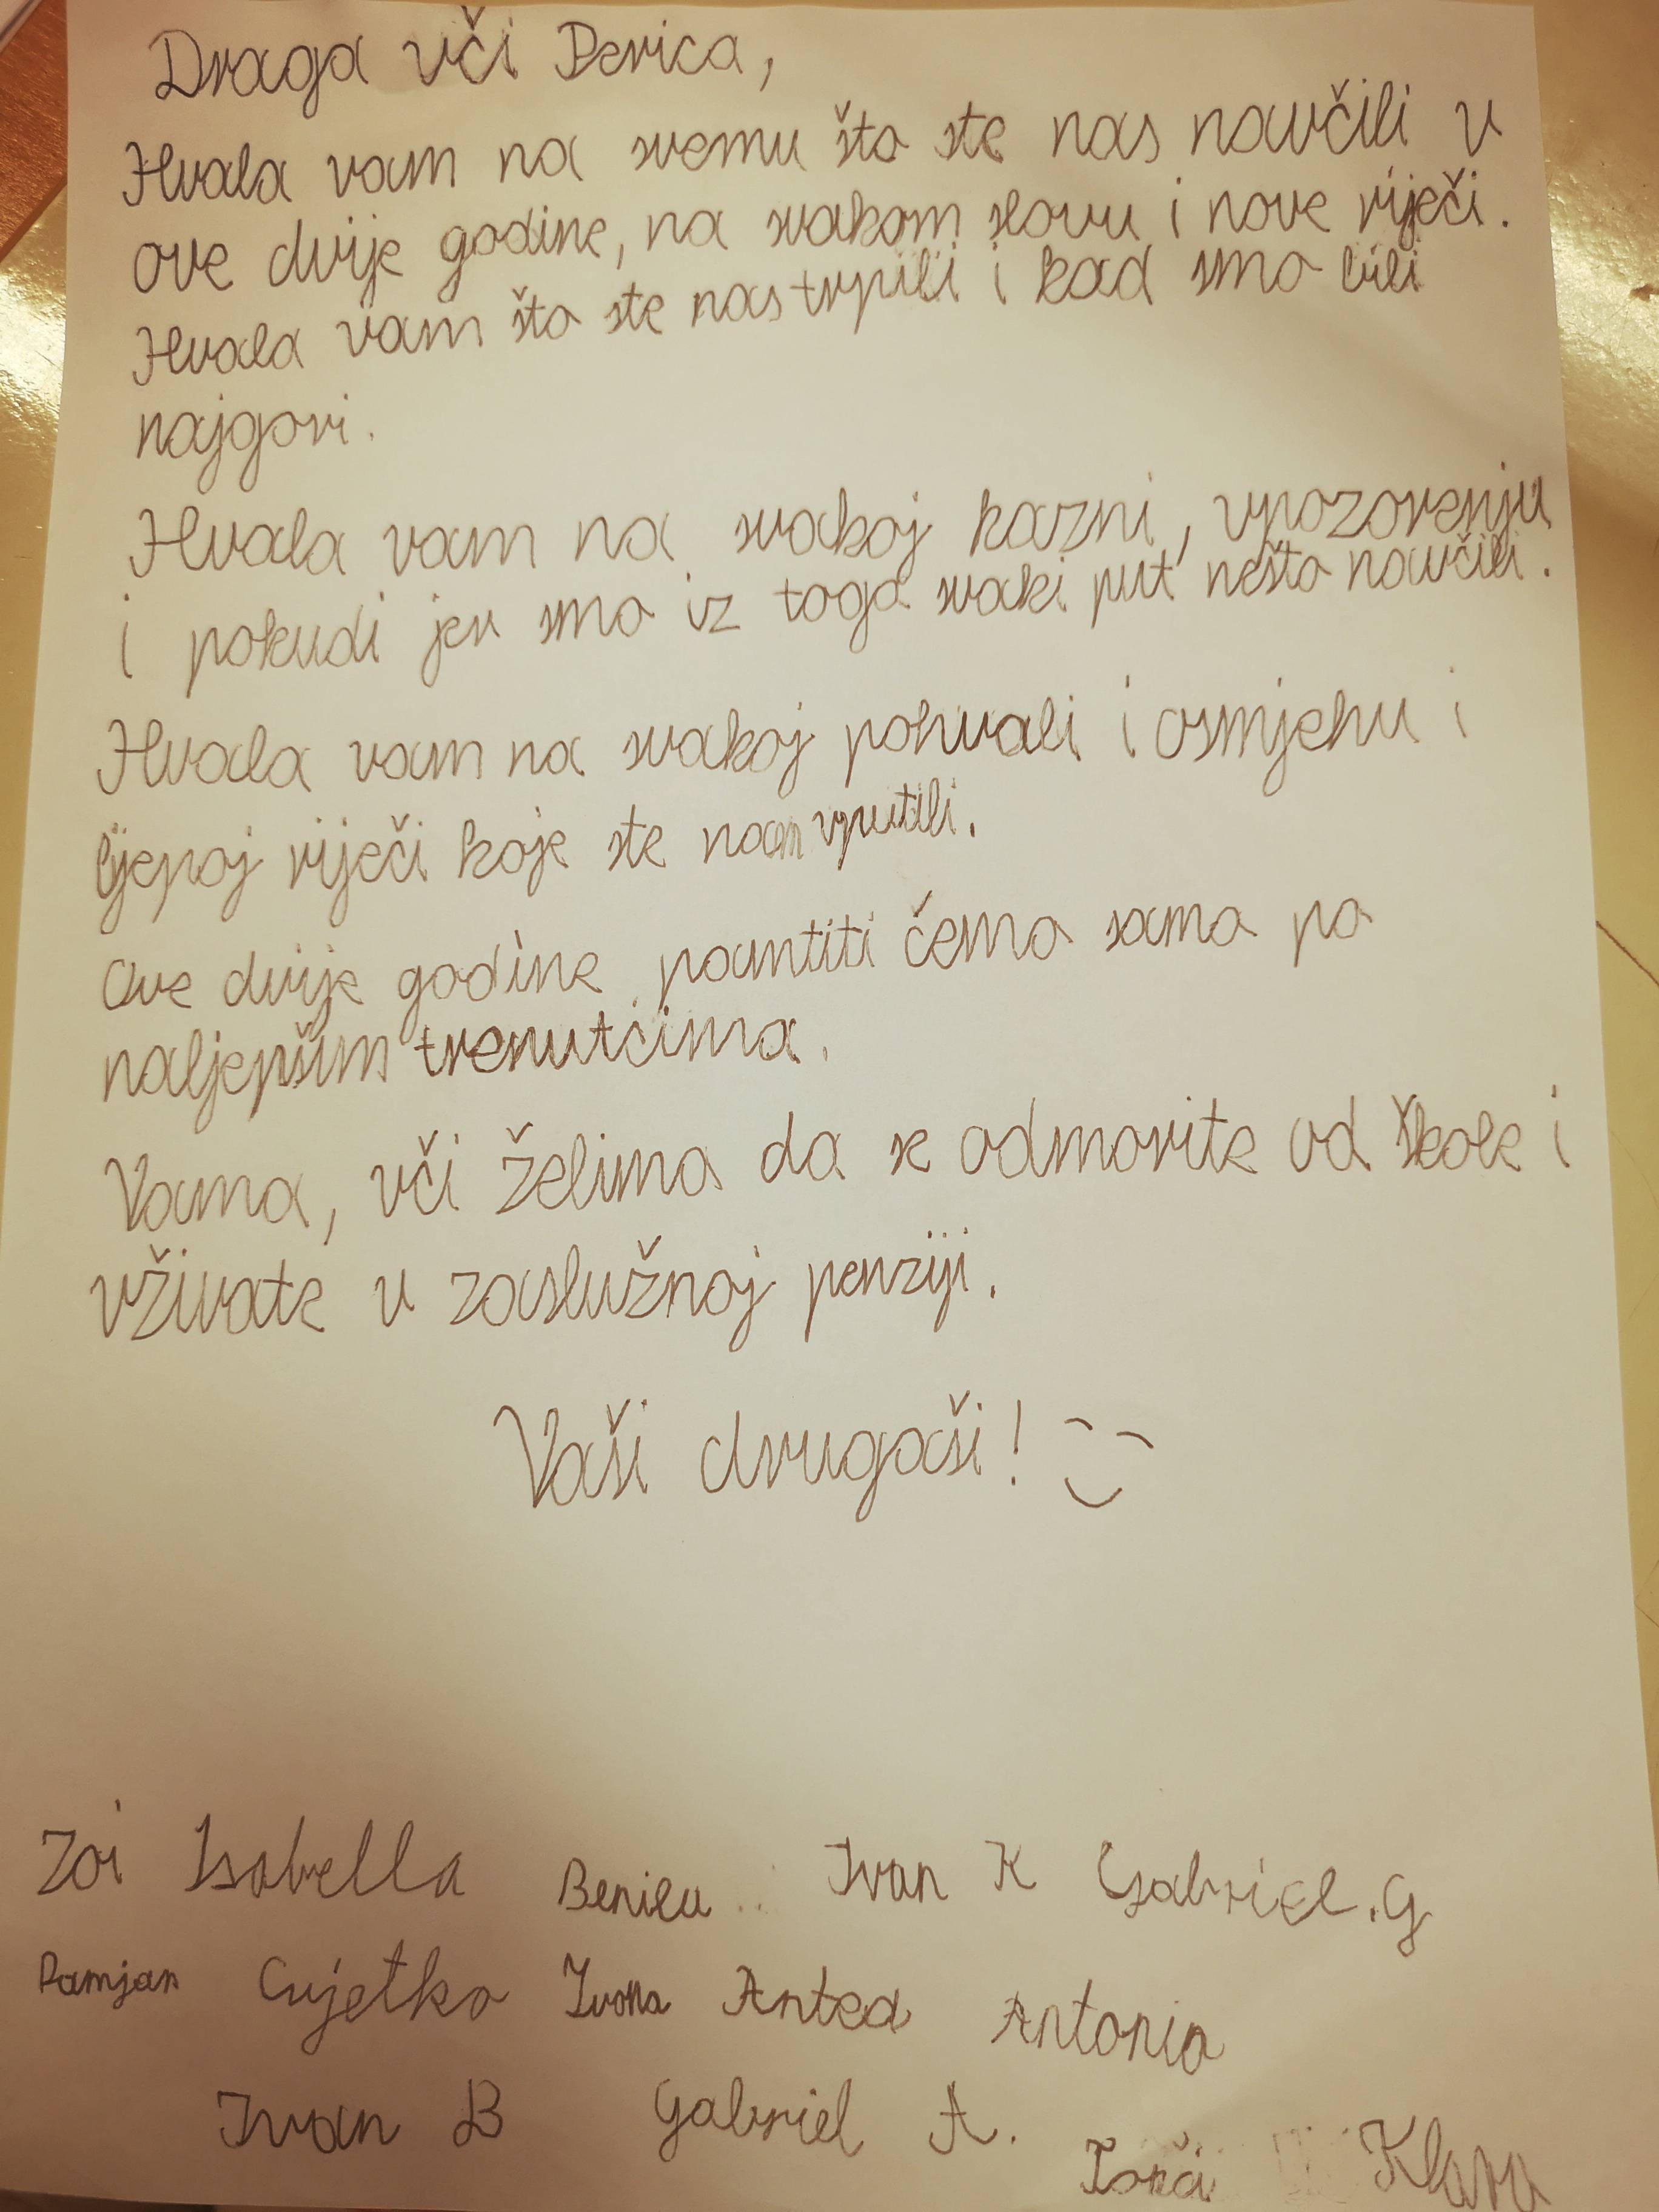 Draga uči Perica,
Hvala vam na svemu što ste nas naučili u
ove dvije godine, na svakom slovu i nove riječi.
Hvala vam što ste nas trpili i kad smo bili
najgori.
Hvala vam na svakoj kazni, upozorenju
i pokudi jer smo iz toga svaki put nešto naučili.
Hvala vam na svakoj pohvali i osmjehu i
ljepoj riječi koje ste nam uputili.
Ove dvije godine pamtiti ćemo samo po
naljepšim trenutcima.
Vama, uči želimo da se odmorite od škole i
uživate u zaslužnoj penziji.
Vaši drugaši!
Zoi Isabella Ivan K Gabriel.G
Damjan Cvjetko Ivona Antea Antonio
Ivan B Gabriel A. Klara